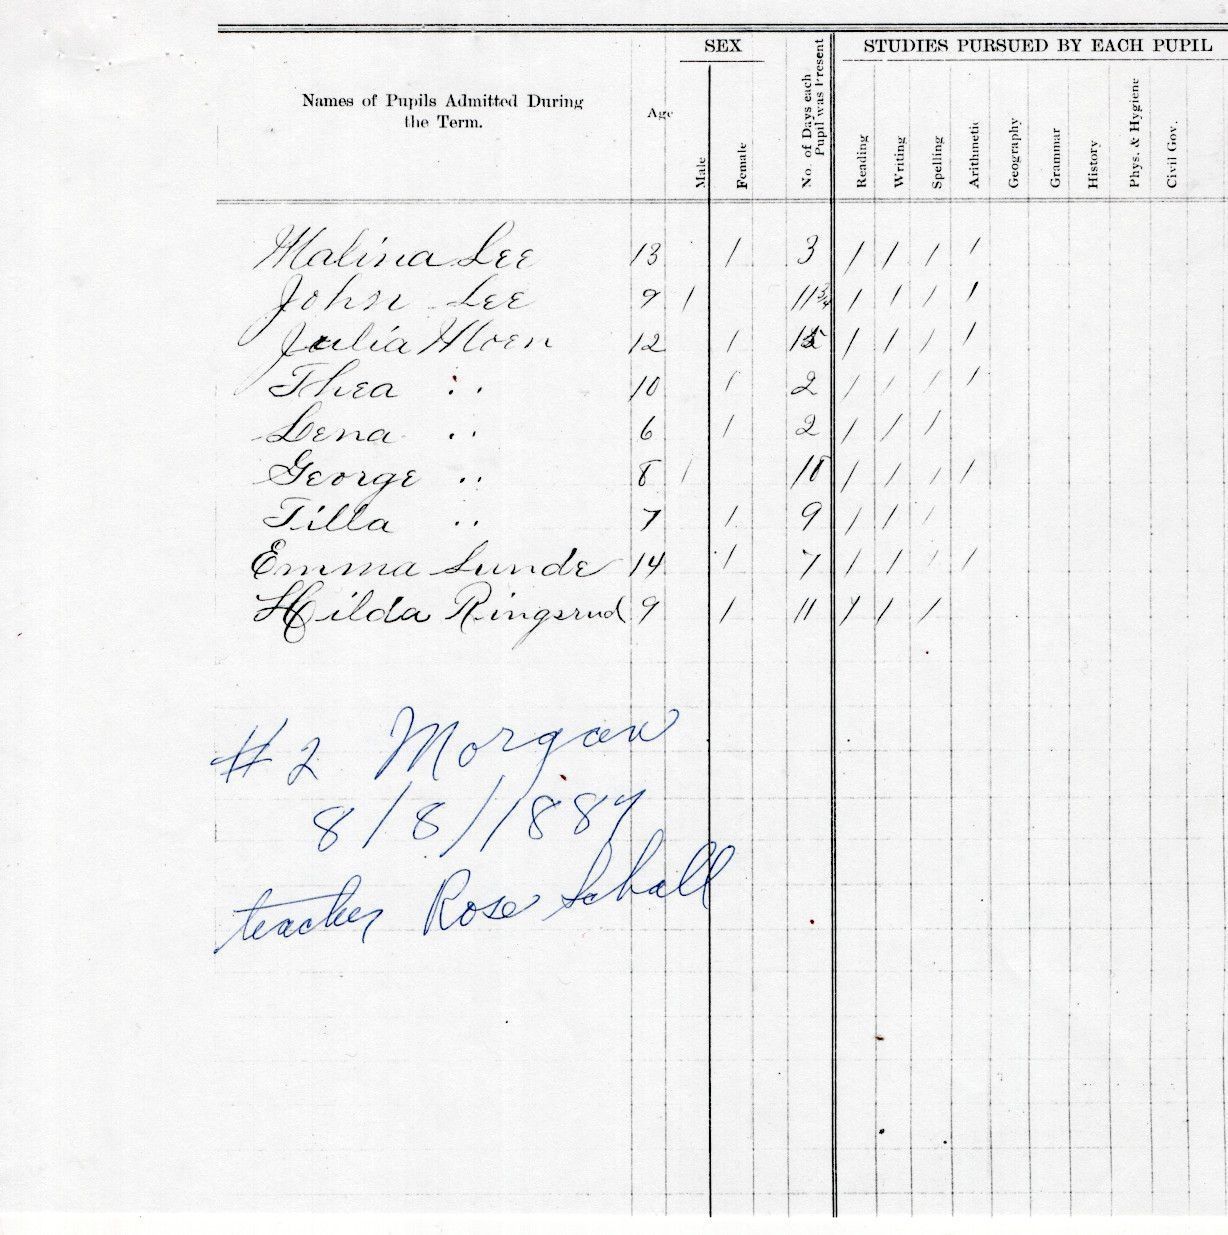 SEX
STUDIES PURSUED BY EACH PUPIL
Names of Pupils Admitted During
the Term.
Age
Male
Female
No. of Days each
Pupil was Present
Reading
Writing
Spelling
Arithmetic
Geography
Grammar
History
Phys. & Hygiene
Civil Gov.
Malina Lee 13 / 3 / / / /
John Lee 9 / 11 3/4 / / / /
Julia Moen 12 / 15 / / / /
Thea " 10 / 2 / / / /
Lena " 6 / 2 / / /
George " 8 / / / / /
Tilla " 7 / 9 / / /
Emma Lunde 14 / 7 / / / /
Hilda Ringsrud 9 / 11 / / /
#2 Morgan
8/8/1887
teacher Rose Schall